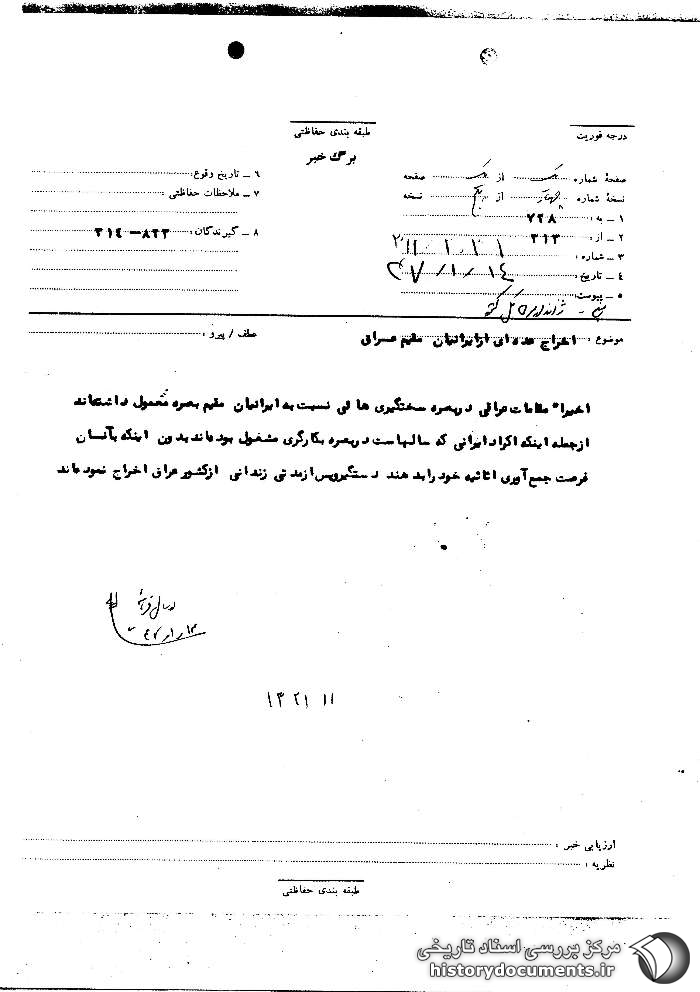 طبقه بندی حفاظتی
درجه فوریت
برگ خبر
صفحهٔ شماره یک از یک صفحه
نسخهٔ شماره چهار از پنج نسخه
۱ – به : ۷۲۸
۲ – از : ۳۱۳
۳ – شماره :
۴ – تاریخ : ۴۷/۱/۱۴
۵ – پیوست :
۶ – تاریخ وقوع :
۷ – ملاحظات حفاظتی :
۸ – گیرندگان : ۸۲۳–۳۱۴
موضوع : اخراج عده ای از ایرانیان مقیم عراق
عطف / پیرو :
اخیرا" مقامات عراقی در بصره سختگیری ها ئی نسبت به ایرانیان مقیم بصره معمول داشته‌اند
ازجمله اینکه اکراد ایرانی که سالهاست در بصره بکارگری مشغول بوده‌اند بدون اینکه بآنسان
فرصت جمع آوری اثاثیه خود را بد هند دستگیر وپس از مدتی زندانی از کشور عراق اخراج نموده‌اند
۱۱ ۱۴۲۱
ارزیابی خبر :
نظریه :
طبقه بندی حفاظتی
مرکز بررسی اسناد تاریخی
historydocuments.ir